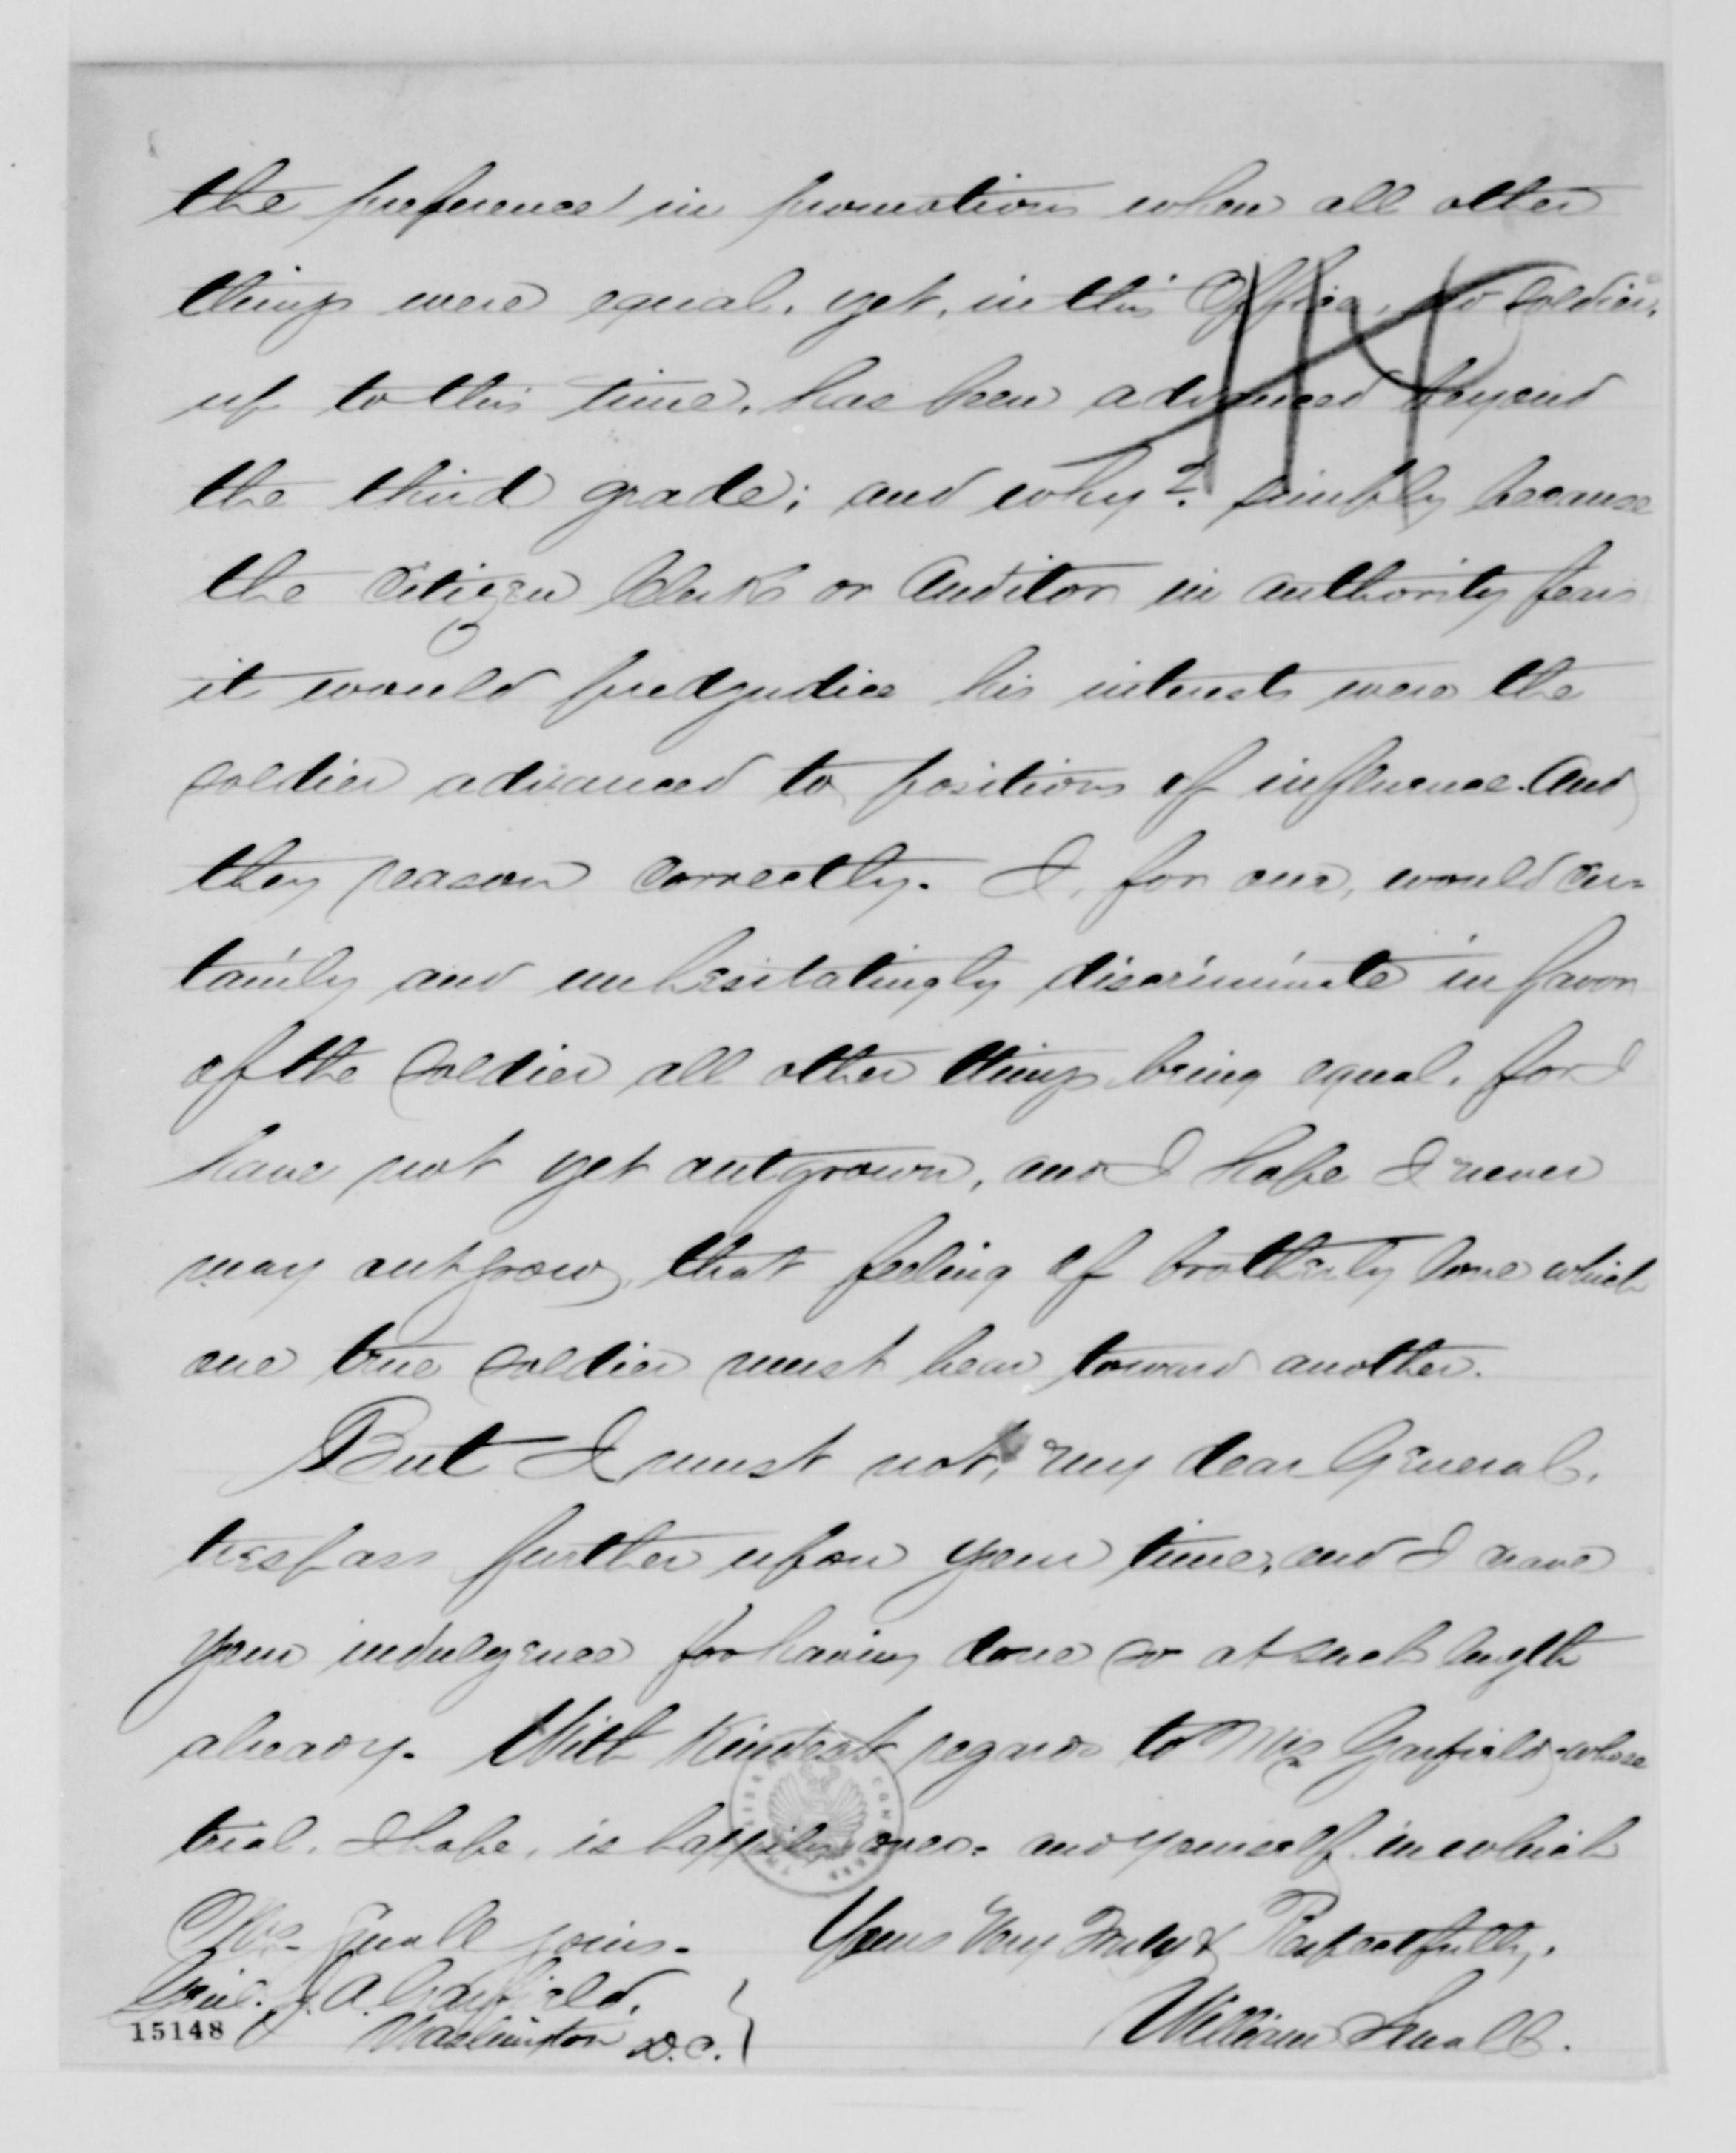 the preference in promotions when all other
things were equal, yet, in this Office, no soldier,
up to this time, has been advanced beyond
the third grade; and why? simply because
the Citizen Clerks or Auditor in authority fears
it would predjudice his interests were the
soldier advanced to positions of influence. And
they reason correctly. I, for one, would cer=
tainly and unhesitatingly discriminate in favor
of the soldier all other things being equal, for I
have not yet outgrown, and I hope I never
may outgrow, that feeling of brotherly love which
one true soldier must bear toward another.
But I must not, my dear General,
trespass further upon your time, and I crave
your indulgence for having done so at such length
already. With kindest regards to Mrs Garfield-whose
trial, I hope, is happily over- and yourself in which
Mrs. Small joins. Yours Very Truly & Respectfully,
Genl. J. A. Garfield,
Washington D.C. William Small.
15148